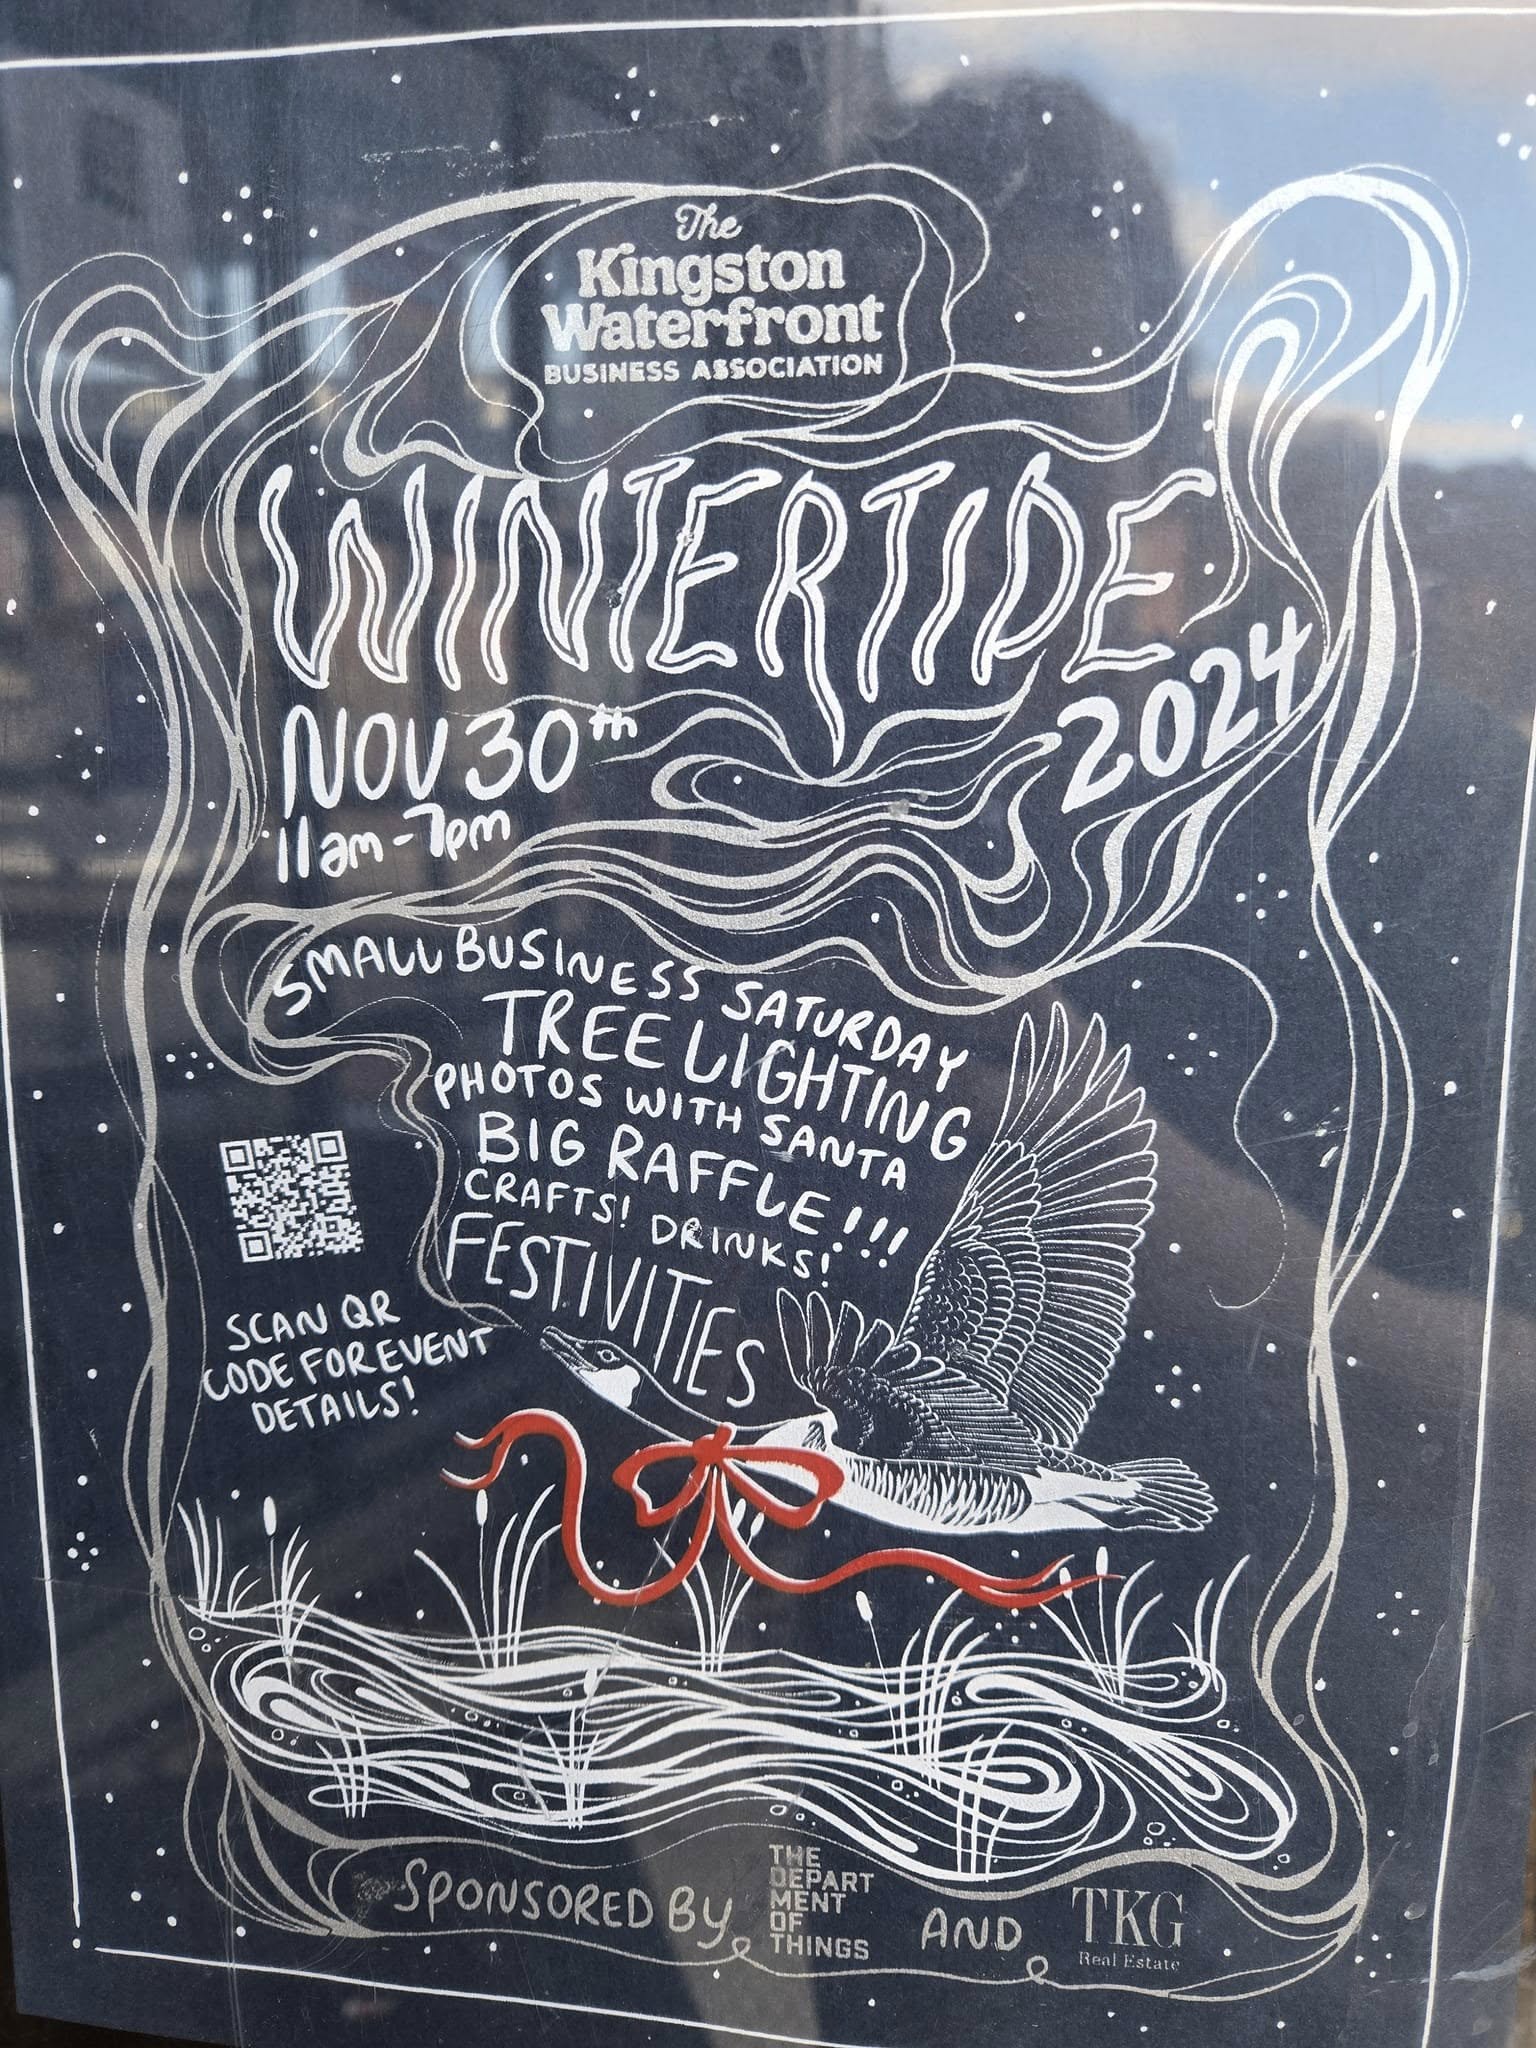 The
Kingston
Waterfront
BUSINESS ASSOCIATION
WINTERTIDE
2024
NOV 30th
11am-7pm
SMALL BUSINESS SATURDAY
TREE LIGHTING
PHOTOS WITH SANTA
BIG RAFFLE!!!
CRAFTS! DRINKS!
FESTIVITIES
SCAN QR
CODE FOR EVENT
DETAILS!
SPONSORED BY
THE
DEPART
MENT
OF
THINGS
AND
TKG
Real Estate